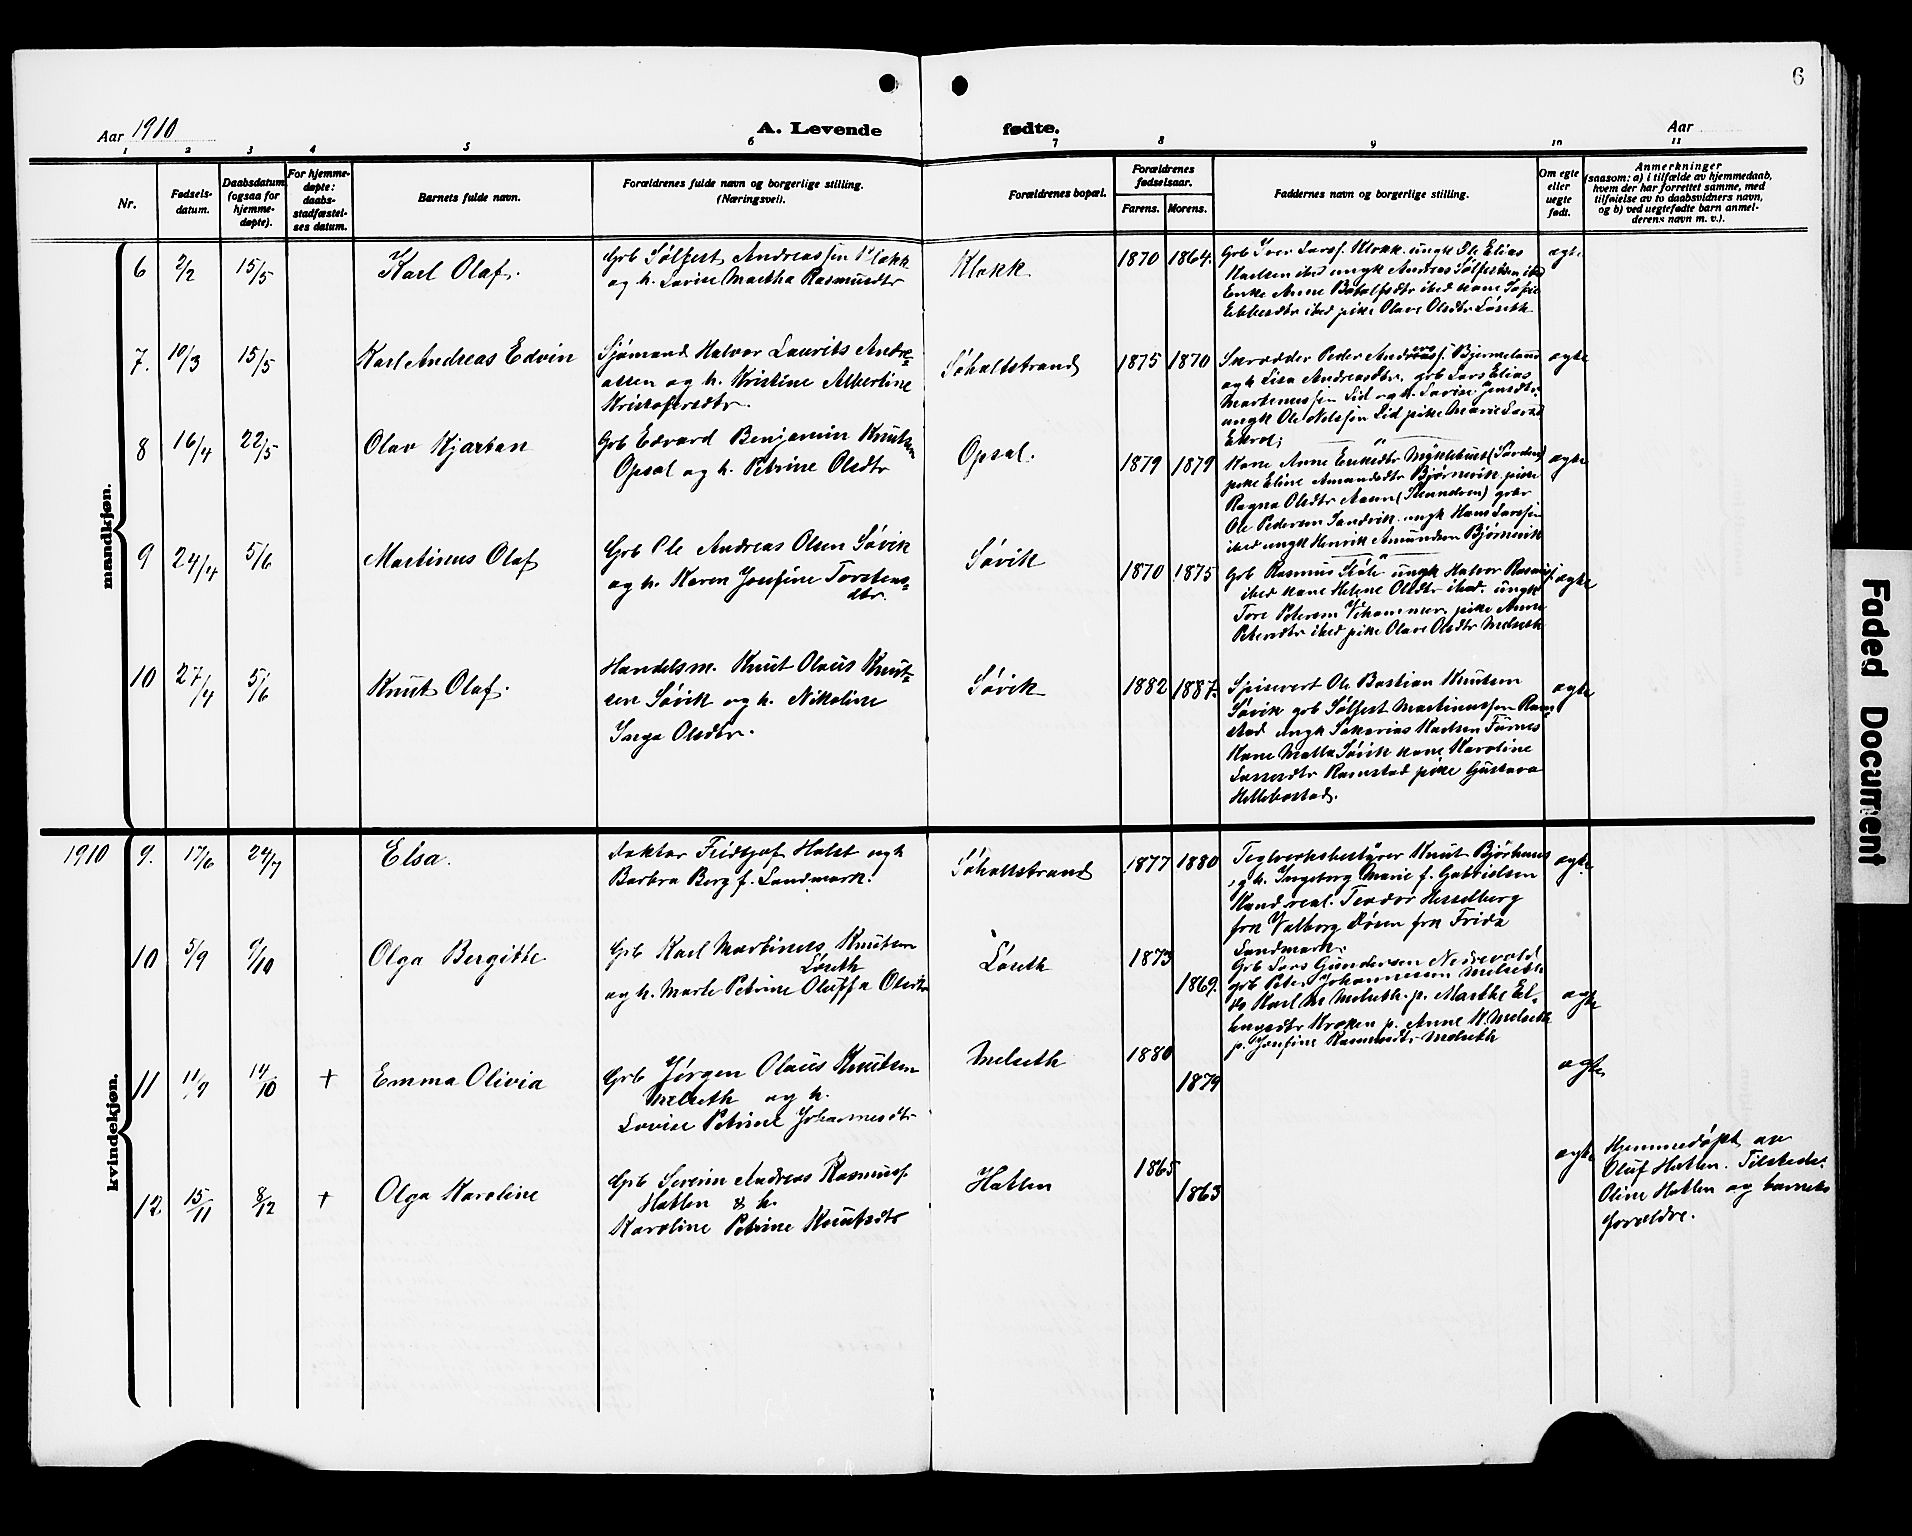 6
Aar 1910
A. Levende fødte.
Aar
1 2 3 4 5 6 7 8 9 10 11
Nr.
Fødsels-
datum.
Daabsdatum
(ogsaa for
hjemme-
døpte).
For hjemme-
døpte:
daabs-
stadfæstel-
ses datum.
Barnets fulde navn.
Forældrenes fulde navn og borgerlige stilling.
(Næringsvei).
Forældrenes bopæl.
Forældrenes
fødselsaar.
Farens. Morens.
Faddernes navn og borgerlige stilling.
Om egte
eller
uegte
født.
Anmerkninger
(saasom: a) i tilfælde av hjemmedaab,
hvem der har forrettet samme, med
tilføielse av to daabsvidners navn,
og b) ved uegtefødte barn anmel-
derens navn m. v.).
mandkjøn.
6 2/2 15/5 Karl Olaf.
Grb Sølfest Andreassen Klokk
og h. Lovise Martha Rasmusdtr
Klokk 1870 1864.
Grb Iver Larss. Klokk. ungk Ole Elias
Karlsen ibd ungk Andreas Sølfestsen ibd
Enke Anne Botolfsdtr ibed kone Sofie
ibed pike Olave Olsdtr Løseth
egte
7. 10/3 15/5 Karl Andreas Edvin
Sjømand Halvor Laurits Andre-
assen og h. Kristine Albertine
Kristofersdtr.
Søholtstrand 1875 1870
Skrædder Peder Andreass. Bjermeland
og h Lisa Andreasdtr. grb Lars Elias
Martinussen Lid og h. Lovise Jensdtr.
ungk Ole Nilssen Lid pike Marie Larsd
egte
8 16/4 22/5 Olav Kjartan
Grb Edvard Benjamin Knutsen
Opsal og h. Petrine Olsdtr
Opsal. 1879 1879
Kone Anne Eriksdtr Myklebust
pike Eline Amundsdtr Bjørnevik pike
Ragna Olsdtr Aasen
Ole Pedersen Sandvik. ungk Hans Larssen
ibed ungk Henrik Amundsen Bjørnevik
egte
9 24/4 5/6 Martinus Olaf
Grb Ole Andreas Olsen Søvik
og h. Karen Josefine Torstens-
dtr.
Søvik 1870 1875
Grb Rasmus ungk Halvor Rasmuss.
ibed kone Helene Olsdtr ibed. ungk
Tore Petersen Vehammer. pike Anne
Petersdtr ibed pike Olave Olsdtr Melseth
egte
10 27/4 5/6 Knut Olaf.
Handelsm. Knut Olaus Knut-
sen Søvik og h. Nikoline
Inga Olsdtr.
Søvik 1882 1887.
Spisevert Ole Bastian Knutsen
Søvik grb Sølfest Martinussen Ram-
stad ungk Sakarias Karlsen Furnes
Kone Søvik kone Karoline
Lassesdtr Ramstad pike Gustava
Hellebostad.
egte
kvindekjøn.
1910 9. 17/6 24/7 Elsa.
Doktor Fridtjof Holst og h
Barbra Berg f. Landmark.
Søholtstrand 1877 1880
Teglverksbestyrer Knut Bjørhuus
og h. Ingeborg Marie f. Gabrielsen
Kand. real. Teodor Hesselberg
frk Valborg Døsen frk Frida
Landmark.
egte
10 5/9 9/10 Olga Bergitte
Grb Karl Martinus Knutsen
Løseth
og h. Marte Petrine Oluffa Olsdtr
Løseth 1873 1869.
Grb Lars Gundersen Nedrevold
grb Peter Johannessen Melseth
do Karl M Melseth. p. Marthe El-
Kroken p. Anne K. Melseth
p. Josefine Rasmusdtr Melseth
egte
11 11/9 14/10 + Emma Olivia
Grb Jørgen Olaus Knutsen
Melseth og h.
Lovise Petrine Johannesdtr
Melseth 1880 1879
egte
12. 15/11 8/12 + Olga Karoline
Grb Severin Andreas Rasmuss.
Hatlen & h.
Karoline Petrine Knutsdtr
Hatlen 1865 1863
egte
Hjemmedøpt av
Oluf Hatlen. Tilstede:
Oline Hatlen og barnets
forældre.
Faded Document